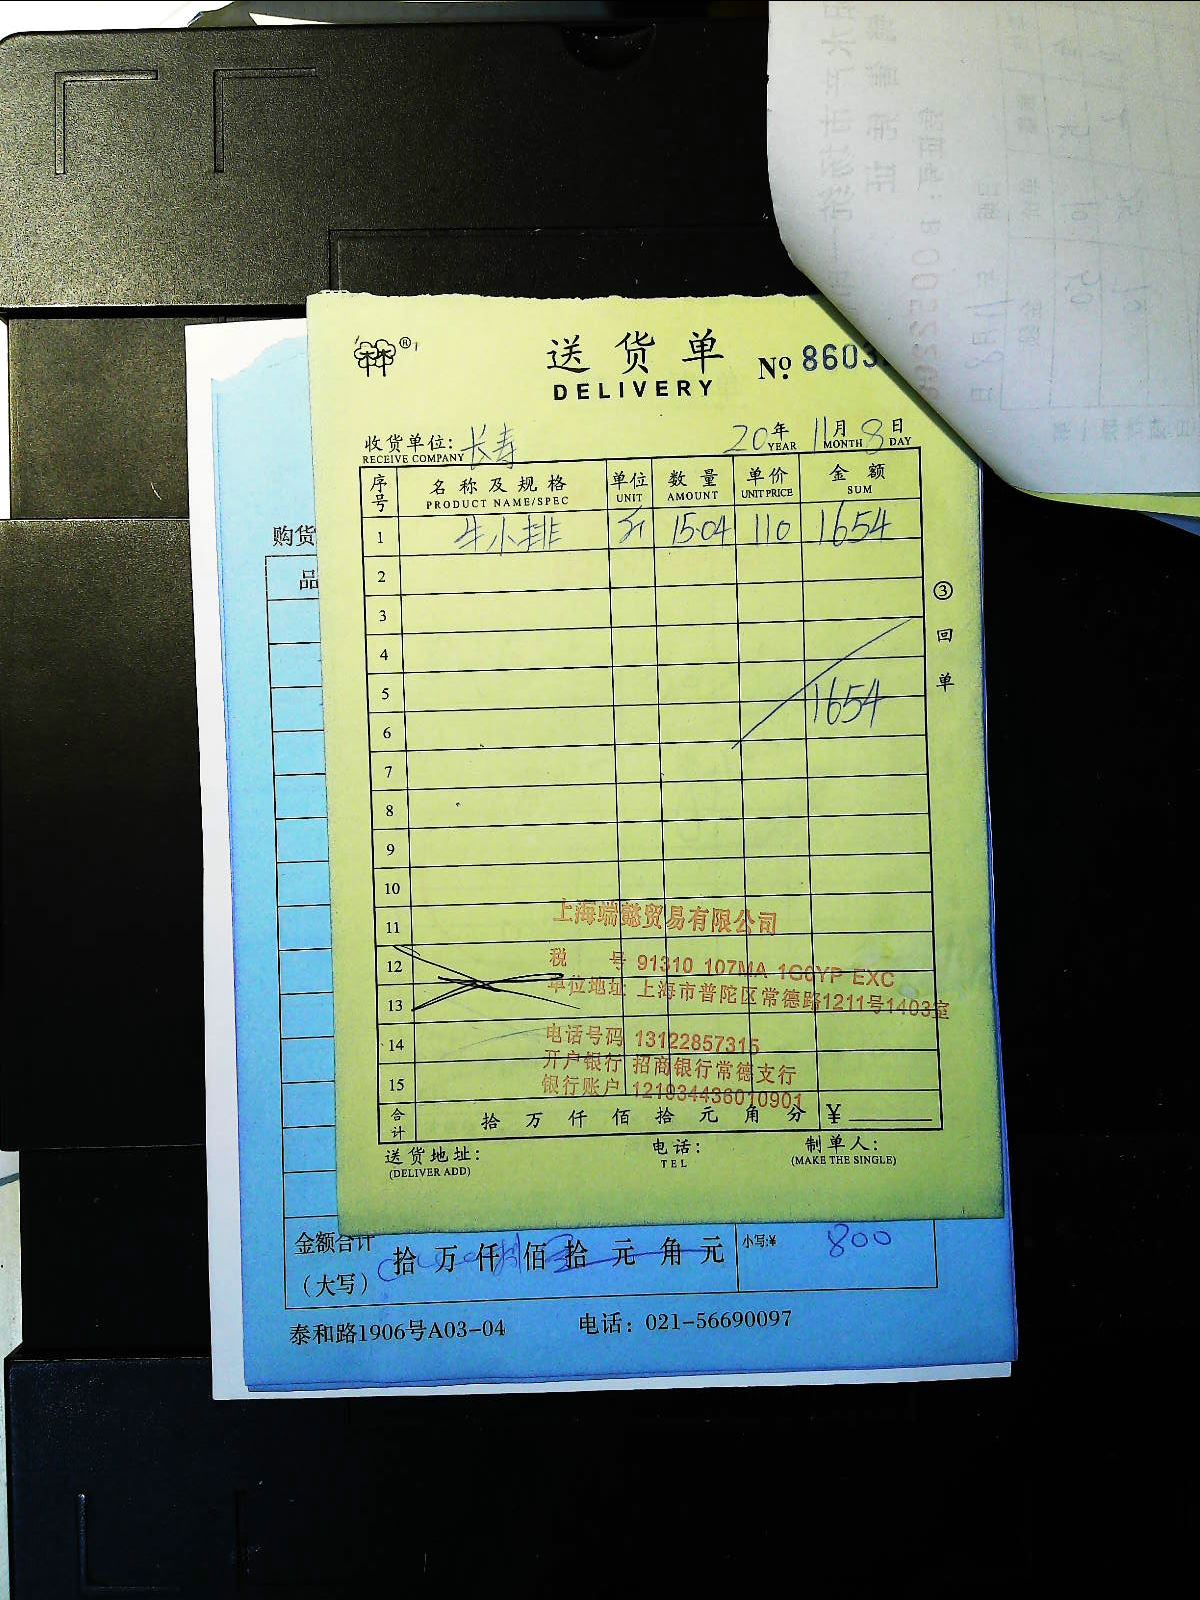 送货单
DELIVERY
№ 8603
收货单位: 长寿
RECEIVE COMPANY
20年 11月 8日
YEAR MONTH DAY
序号 名称及规格 单位 数量 单价 金额
PRODUCT NAME/SPEC UNIT AMOUNT UNIT PRICE SUM
1 牛小排 斤 15.04 110 1654
2
3
4
5
1654
6
7
8
9
10
11
12
13
14
15
上海端懿贸易有限公司
税 号 91310 107MA 1G6YP EXC
单位地址 上海市普陀区常德路1211号1403室
电话号码 13122857315
开户银行 招商银行常德支行
银行账户 121934436010901
合计 拾 万 仟 佰 拾 元 角 分 ¥
送货地址: 电话: 制单人:
(DELIVER ADD) TEL (MAKE THE SINGLE)
③回单
购货
品
金额合计
(大写) 拾 万 仟 佰 拾 元 角 元 小写:¥ 800
泰和路1906号A03-04 电话: 021-56690097